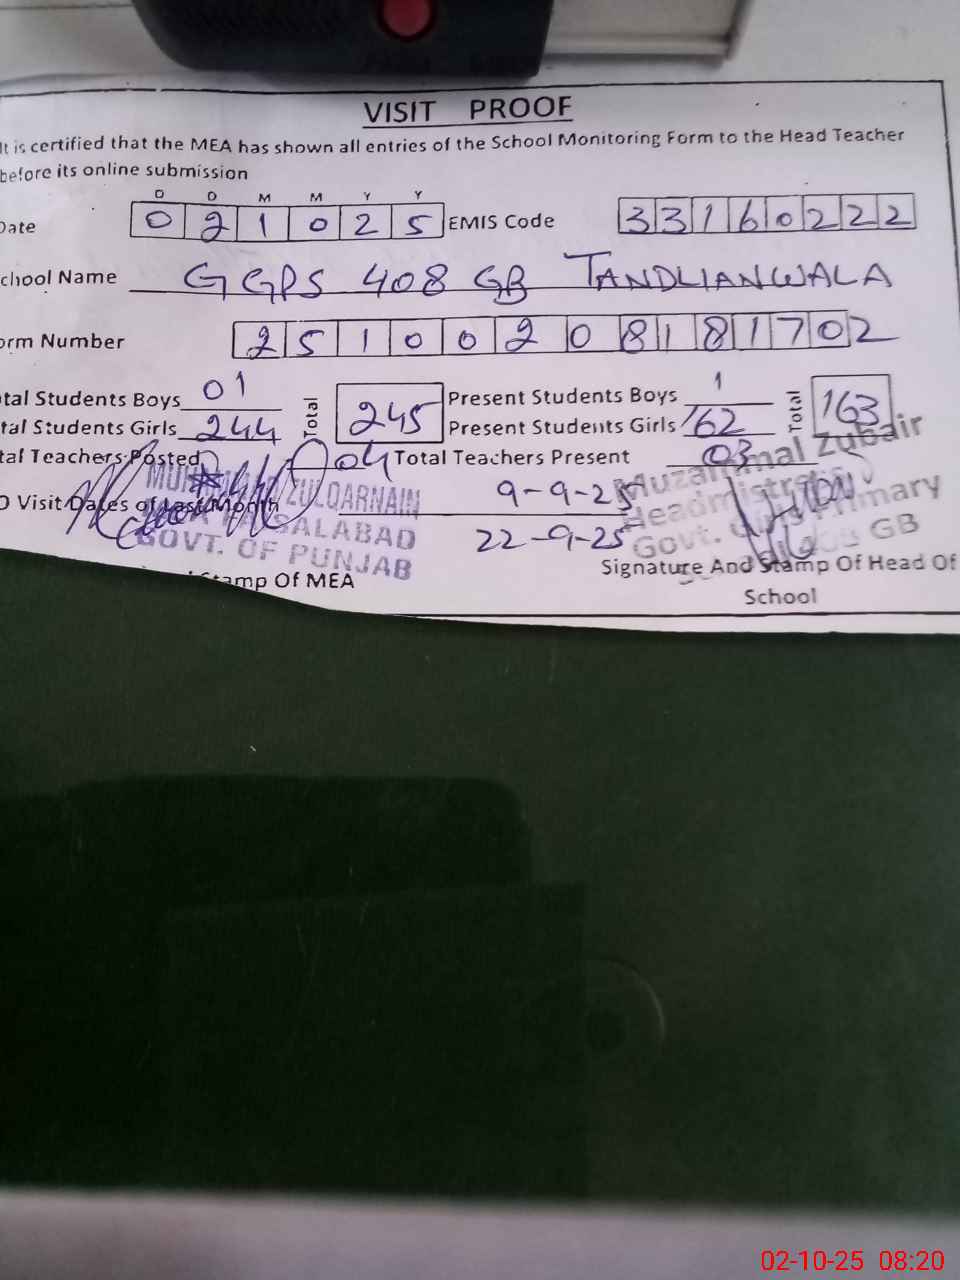 VISIT PROOF
It is certified that the MEA has shown all entries of the School Monitoring Form to the Head Teacher
before its online submission
D D M M Y Y
Date 0 2 1 0 2 5 EMIS Code 3 3 1 6 0 2 2 2
chool Name GGPS 408 GB TANDLIANWALA
orm Number 2 5 1 0 0 2 0 8 1 8 1 7 0 2
tal Students Boys 01 Total 245 Present Students Boys 1 Total 163
tal Students Girls 244 Present Students Girls 162
tal Teachers Posted 04 Total Teachers Present 03
O Visit Dates of Last Month 9-9-25
22-9-25
ZULQARNAIN
FAISALABAD
GOVT. OF PUNJAB
Muzammal Zubair
Headmistress
Govt. Girls Primary
GB
Stamp Of MEA
Signature And Stamp Of Head Of
School
02-10-25 08:20